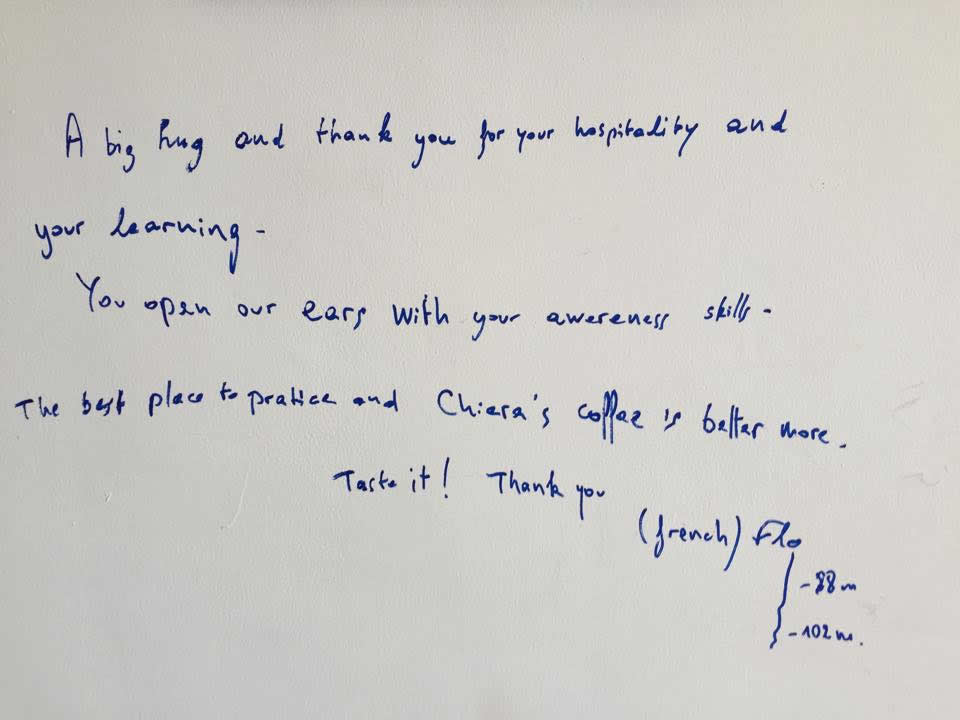 A big hug and thank you for your hospitality and
your learning -
You open our ears with your awereness skills -
The best place to pratice and Chiara's coffee is better more.
Taste it! Thank you
(french) Flo
- 88 m
- 102 m.